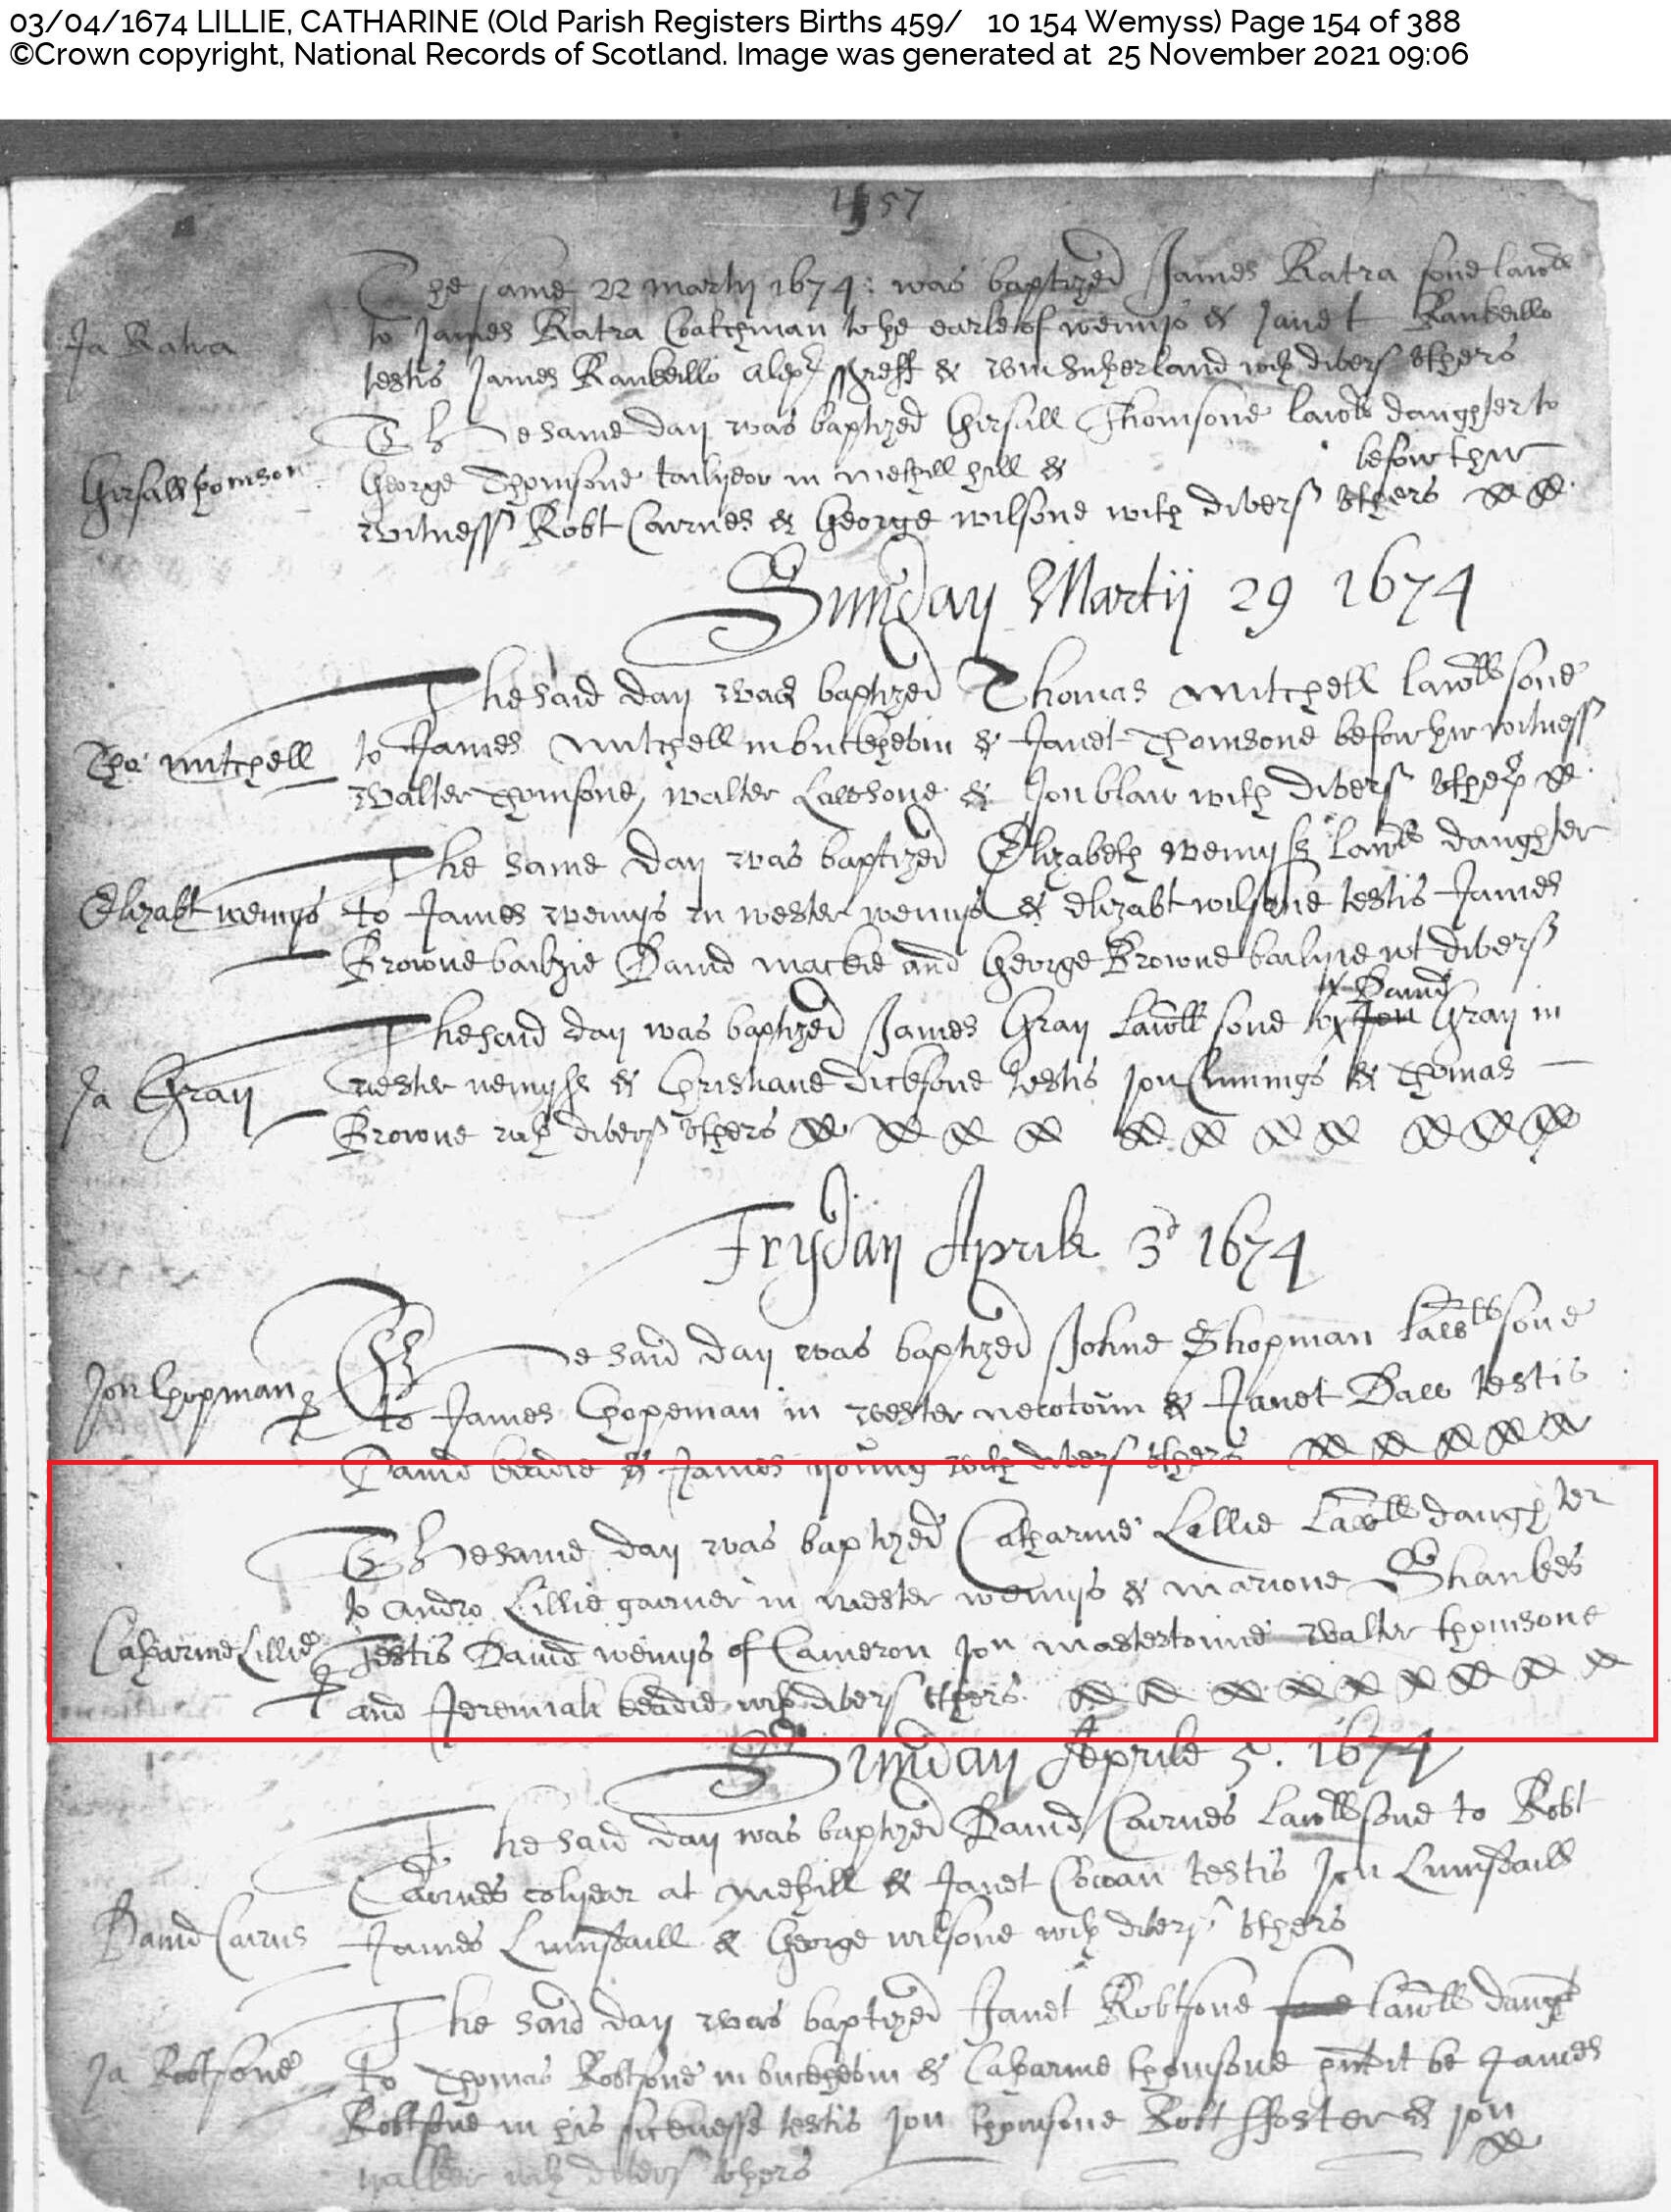 03/04/1674 LILLIE, CATHARINE (Old Parish Registers Births 459/ 10 154 Wemyss) Page 154 of 388
©Crown copyright, National Records of Scotland. Image was generated at 25 November 2021 09:06
57
The same 22 martij 1674: was baptized James Ratra sone lawll
Ja Ratra
to James Ratra Coatchman to he earle of wemijs & Janet Rankeillo
testis James Rankeillo Alexr & wm Sutherland with divers others
The same day was baptized Thomsone lawll daughter to
George Thomsone tailyeor in methill hill & befor thir
witness Robt Cairnes & George wilsone with divers others
Sunday Martij 29 1674
The said day was baptized Thomas mitchell lawll sone
Tho mitchell
to James mitchell in buckhevin & Janet Thomsone befor thir witness
Walter Thomsone, walter Lawsone & Jon blair with divers others
The same day was baptized Elizabeth wemyss lawll daughter
Elizabt wemijs
to James wemijs in wester wemijs & Elizabt wilsone testis James
Browne bailzie David mackie and George Browne bailyie wt divers
David
The said day was baptized James Gray lawll sone to Jon Gray in
Ja Gray
wester wemyss & Christiane dicksone testis Jon Cunings & Thomas
Browne with divers others
Fryday Aprile 3d 1674
The said day was baptized Johne Shopman lawll sone
Jon Chopman
to James Chopeman in wester newtoun & Janet Daw testis
David keadie & James young with divers others
The same day was baptized Catharine Lillie Lawll daughter
to Andro Lillie gairner in wester wemijs & marione Shankes
Catharine Lillie
Testis David wemijs of Cameron Jon mastertoune walter thomsone
and Jeremiah keadie with divers others
Sunday Aprile 5. 1674
The said day was baptized David Cairnes lawll sone to Robt
Cairnes colyear at methill & Janet Cowan testis Jon Lumsdaill
David Cairns
James Lumsdaill & George wilsone with divers others
The said day was baptized Janet Robtsone lawll daught
Ja Robtsone
to Thomas Robtsone in buckhevin & Catharine thomsone be James
Robtsone in his sicknesse testis Jon thomsone Robt ffoster & Jon
walker with divers others